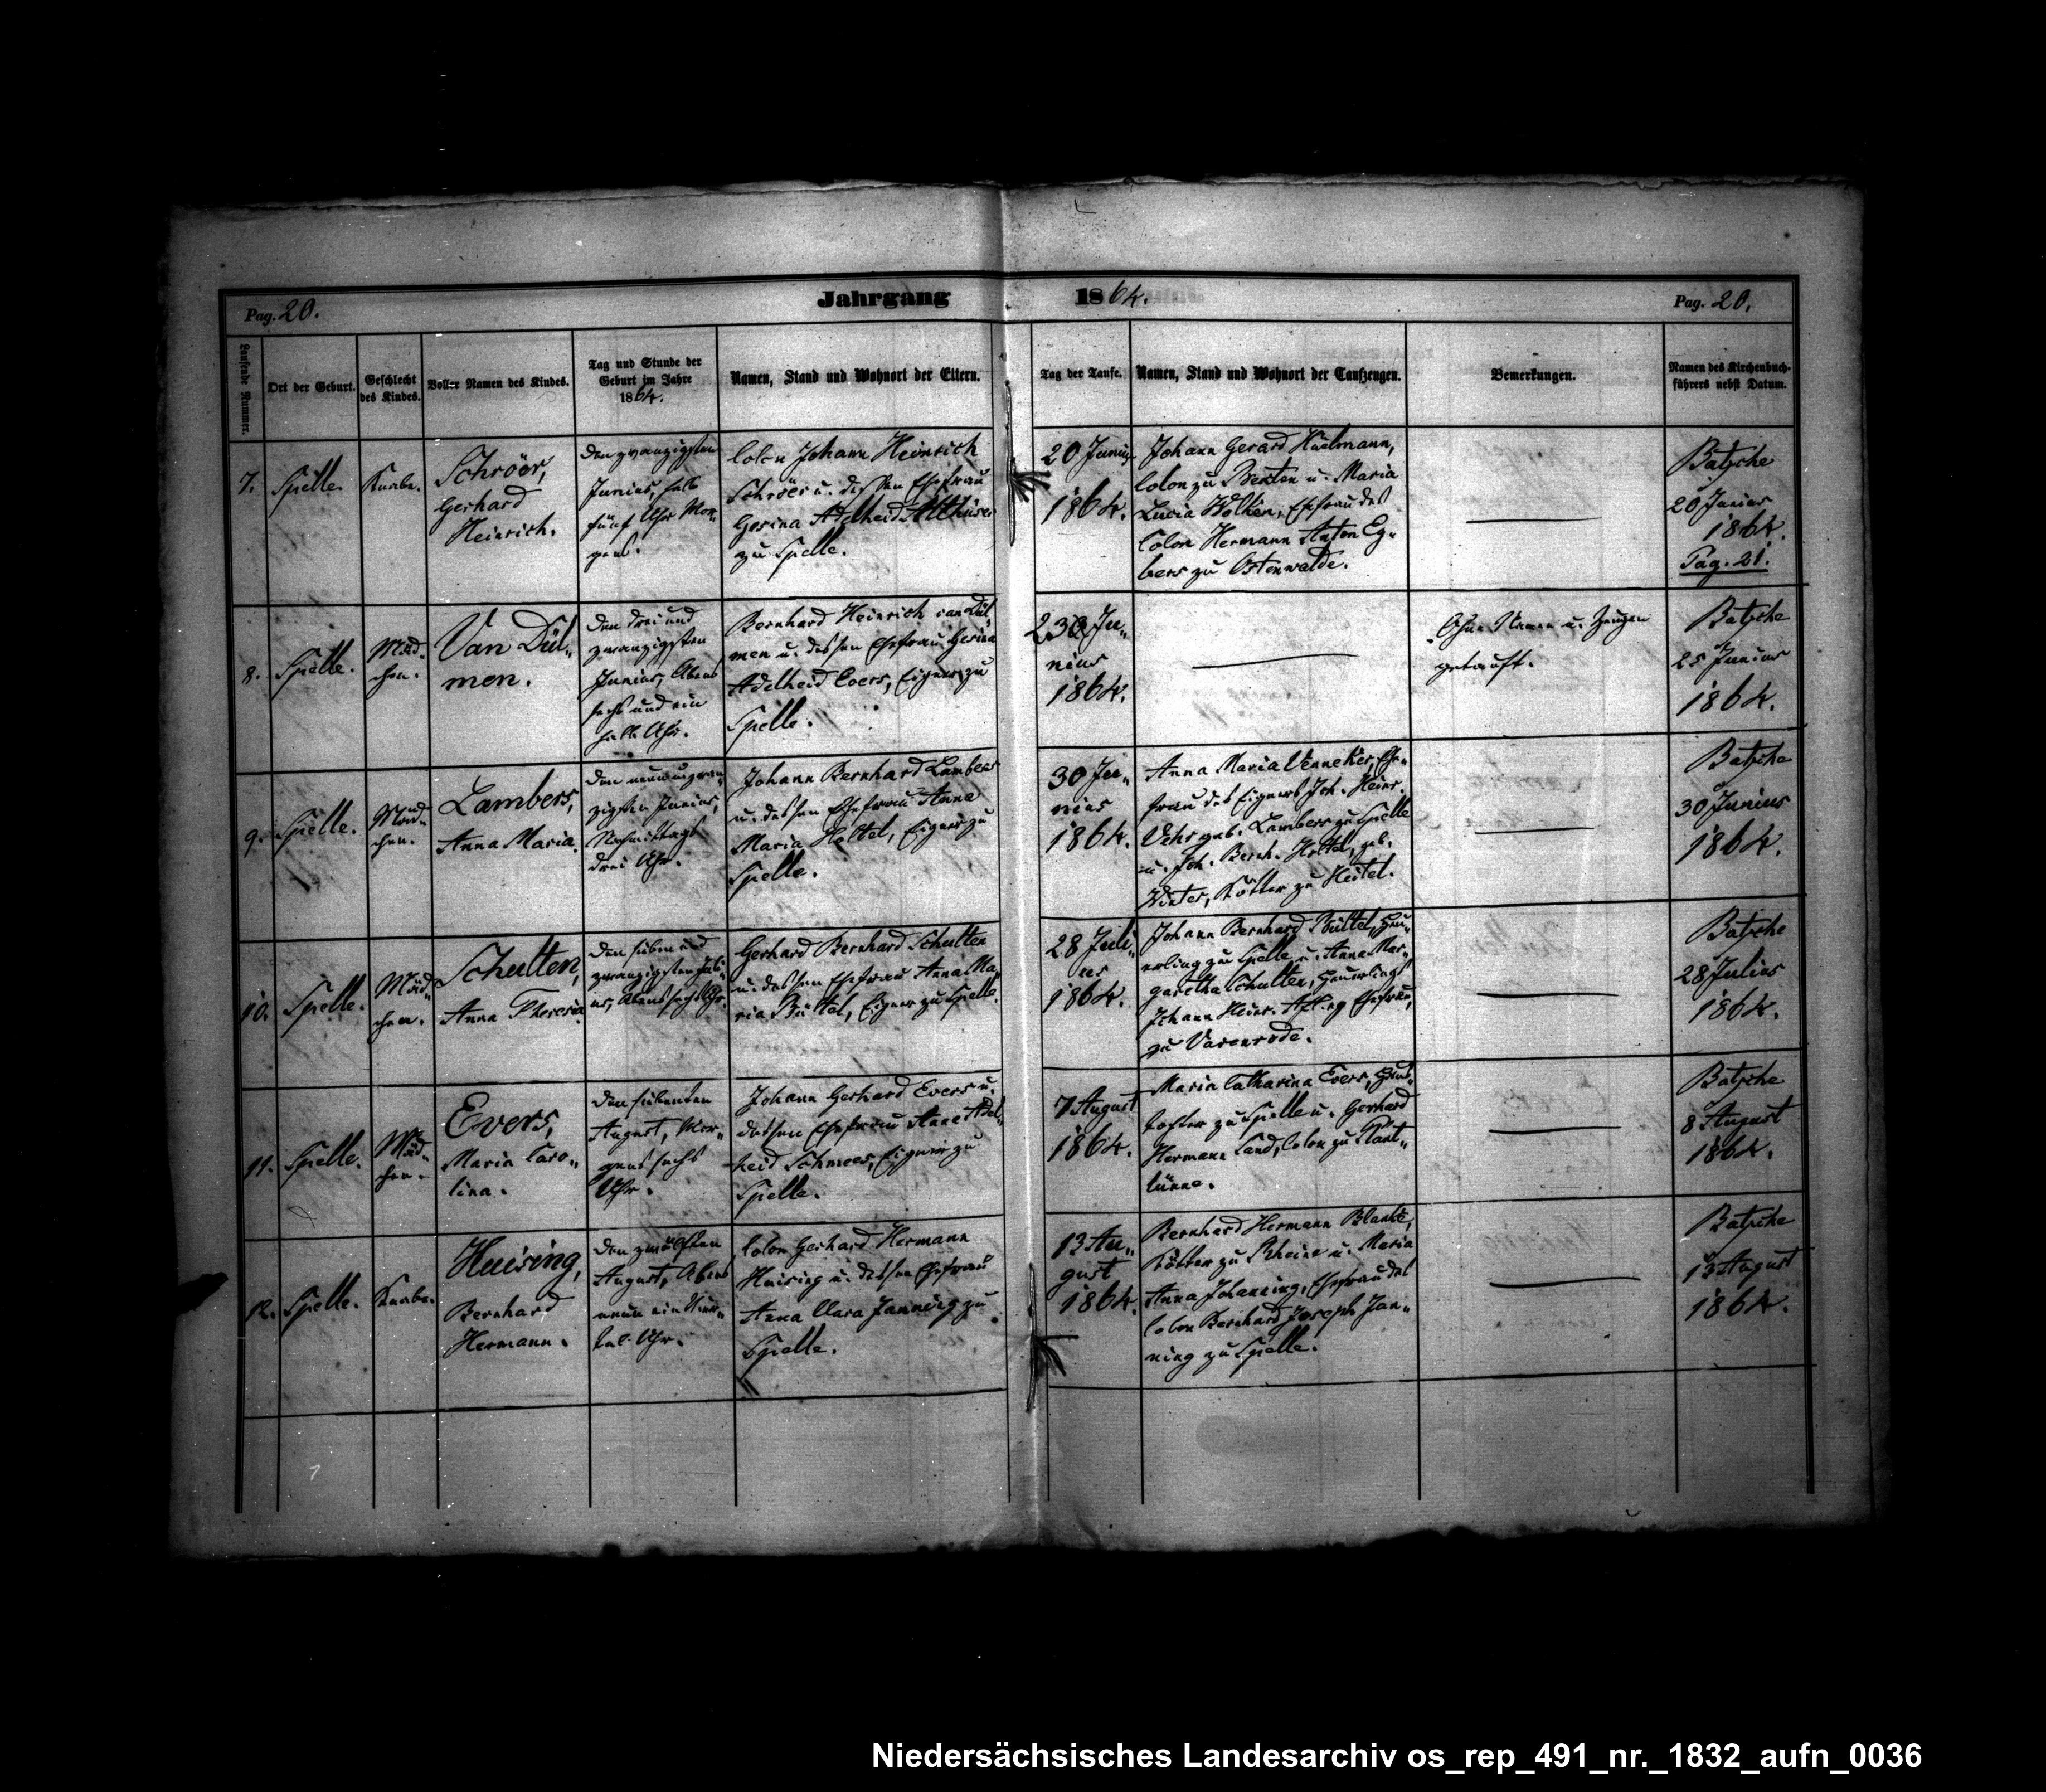 Pag. 20.
Jahrgang 1864.
Pag. 20.
Laufende Nummer.
Ort der Geburt.
Geschlecht
des Kindes.
Voller Namen des Kindes.
Tag und Stunde der
Geburt im Jahre
1864.
Namen, Stand und Wohnort der Eltern.
Tag der Taufe.
Namen, Stand und Wohnort der Taufzeugen.
Bemerkungen.
Namen des Kirchenbuch-
führers nebst Datum.
7.
Spelle.
Knabe.
Schröer,
Gerhard
Heinrich.
den zwanzigsten
Junius, halb
fünf Uhr Mor-
gens.
Colon Johann Heinrich
Schröer u. dessen Ehefrau
Gesina Adelheid
zu Spelle.
20 Junius
1864.
Johann Gerard
Colon zu Venten u. Maria
Lucia Wolken, Ehefrau des
Colon Hermann Anton Eg-
bers zu Ostenwalde.
Batsche
20 Junius
1864.
Pag. 21.
8.
Spelle.
Mäd-
chen.
Van Dül-
men.
den drei und
zwanzigsten
Junius, Abens
sechs und ein
halb Uhr.
Bernhard Heinrich van Dül-
men u. dessen Ehefrau Gesina
Adelheid Evers, Eigner zu
Spelle.
23 Ju-
nius
1864.
Ohne Namen u. Zeugen
getauft.
Batsche
25 Junius
1864.
9.
Spelle.
Mäd-
chen.
Lambers,
Anna Maria.
den neunundzwan-
zigsten Junius,
Nachmittags
drei Uhr.
Johann Bernhard Lambers
u. dessen Ehefrau Anna
Maria Holtel, Eigner zu
Spelle.
30 Ju-
nius
1864.
Anna Maria Venneker, Ehe-
frau des Eigners Joh. Heinr.
Vehr geb. Lambers zu Spelle
u. Joh. Bernh. Holtel, geb.
Winter, Kötter zu Heitel.
Batsche
30 Junius
1864.
10.
Spelle.
Mäd-
chen.
Schulten,
Anna Theresia.
den sieben und
zwanzigsten Juli-
us, Abens sechs Uhr.
Gerhard Bernhard Schulten
u. dessen Ehefrau Anna Ma-
ria Bültel, Eigner zu Spelle.
28 Juli-
us
1864.
Johann Bernhard Bültel, Heu-
erling zu Spelle u. Anna Mar-
garetha Schulten, Heuerlings
Johann Heinr. Ehefrau,
zu Varenrode.
Batsche
28 Julius
1864.
11.
Spelle.
Mäd-
chen.
Evers,
Maria Caro-
lina.
den siebenten
August, Mor-
gens sechs
Uhr.
Johann Gerhard Evers u.
dessen Ehefrau Anna Adel-
heid Schmees, Eigner zu
Spelle.
7 August
1864.
Maria Catharina Evers, Haus-
tochter zu Spelle u. Gerhard
Hermann Sand, Colon zu Plant-
lünne.
Batsche
8 August
1864.
12.
Spelle.
Knabe.
Huising,
Bernhard
Hermann.
den zwölften
August, Abens
neun ein Vier-
tel Uhr.
Colon Gerhard Hermann
Huising u. dessen Ehefrau
Anna Clara Janning zu
Spelle.
13 Au-
gust
1864.
Bernhard Hermann Blanke,
Kötter zu Rheine u. Maria
Anna Johanning, Ehefrau des
Colon Bernhard Joseph Jan-
ning zu Spelle.
Batsche
13 August
1864.
Niedersächsisches Landesarchiv os_rep_491_nr._1832_aufn_0036